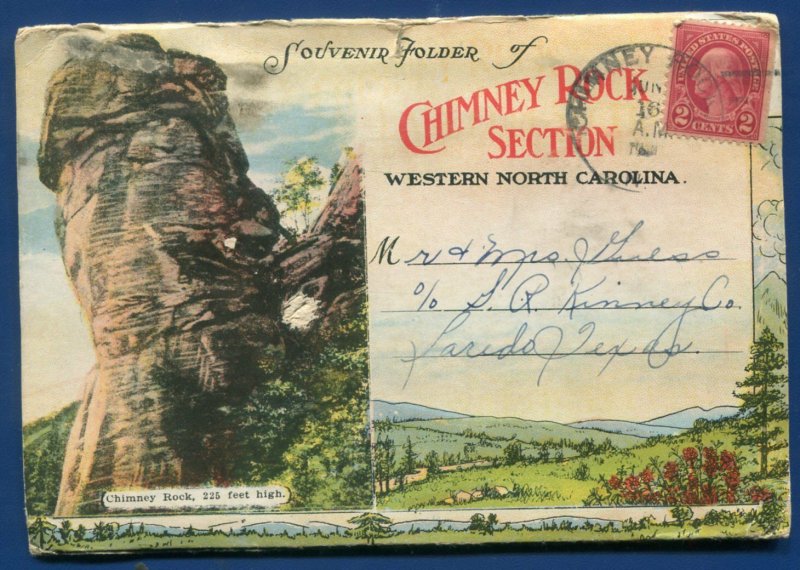 SOUVENIR FOLDER of
CHIMNEY ROCK
SECTION
WESTERN NORTH CAROLINA.
UNITED STATES POSTAGE
2 CENTS 2
CHIMNEY
JUN
16
A.M.
Mr & Mrs Guess
c/o S. R. Kinney Co.
Laredo Texas.
Chimney Rock, 225 feet high.